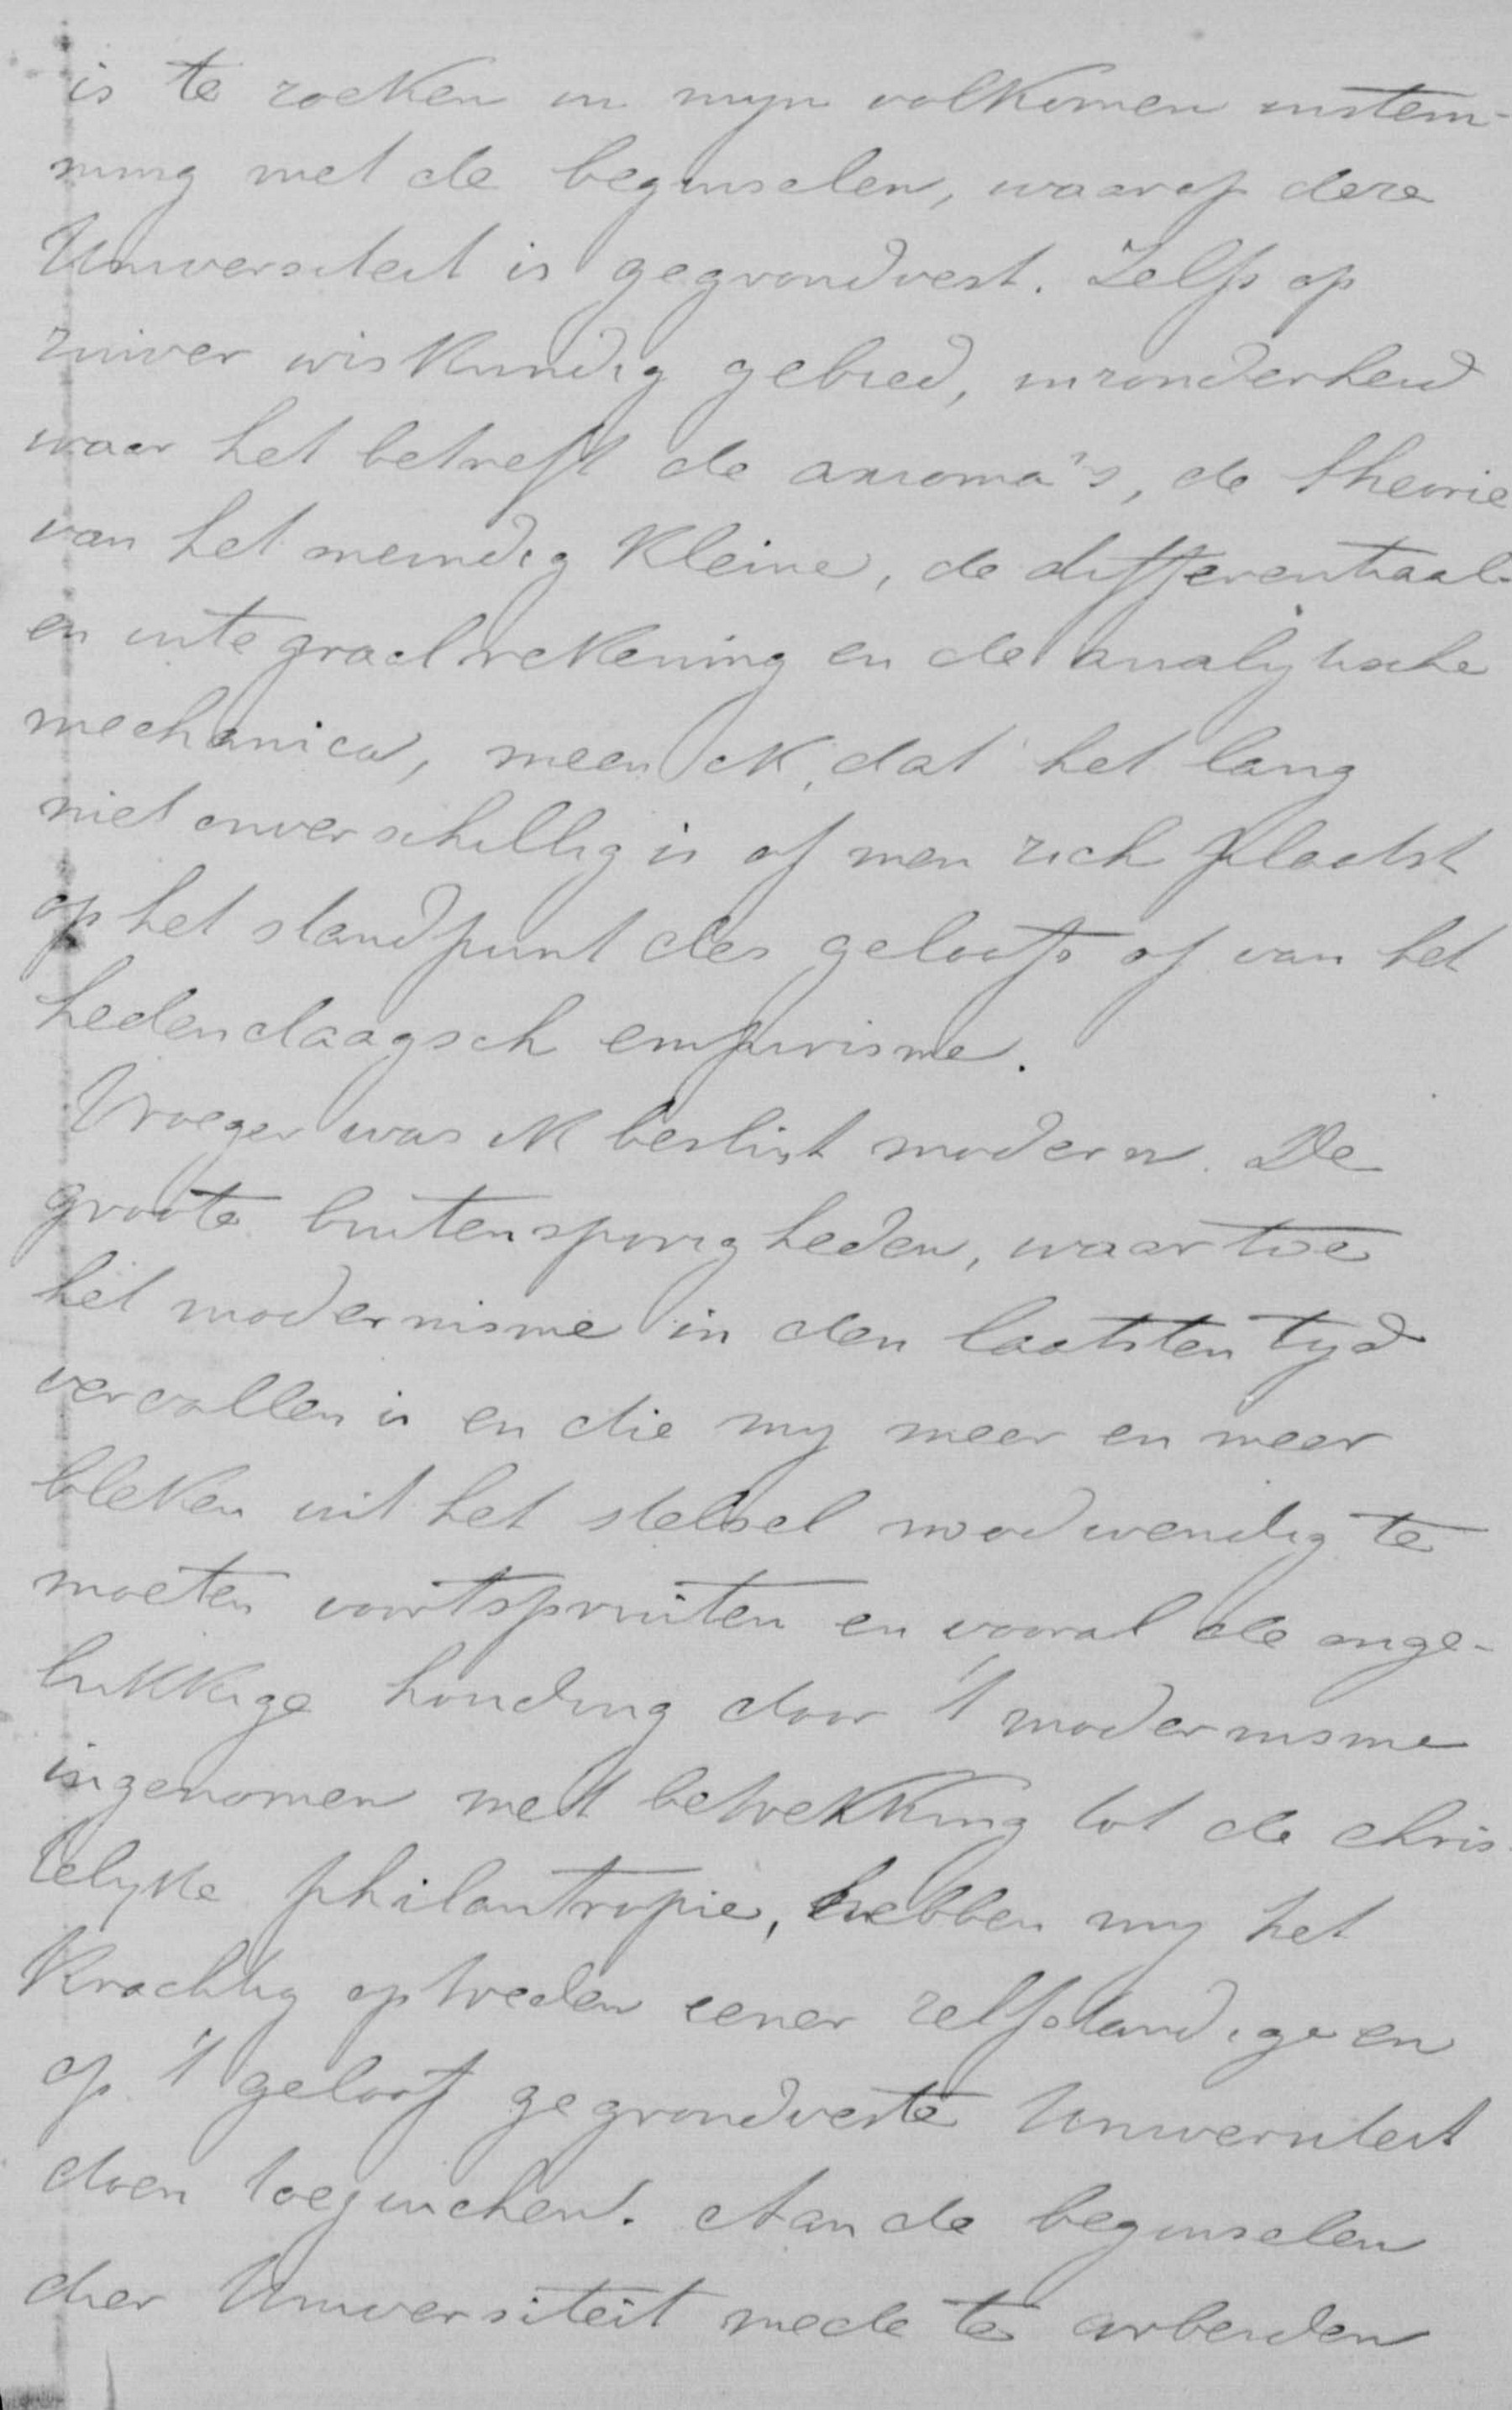 is te zoeken in mijn volkomen instem-
ming met de beginselen, waarop deze
Universiteit is gegrondvest. Zelfs op
zuiver wiskundig gebied, inzonderheid
waar het betreft de axioma's, de theorie
van het oneindig kleine, de differentiaal-
en integraalrekening en de analytische
mechanica, meen ik, dat het lang
niet onverschillig is of men zich plaatst
op het standpunt des geloofs of van het
hedendaagsch empirisme.
Vroeger was ik beslist modern. De
groote buitensporigheden, waartoe
het modernisme in den laatsten tijd
vervallen is en die mij meer en meer
bleken uit het stelsel noodwendig te
moeten voortspruiten en vooral de onge-
lukkige houding door 't modernisme
ingenomen met betrekking tot de chris-
telijke philantropie, hebben mij het
krachtig optreden eener zelfstandige en
op 't geloof gegrondveste Universiteit
doen toejuichen. Aan de beginselen
dier Universiteit mede te arbeiden